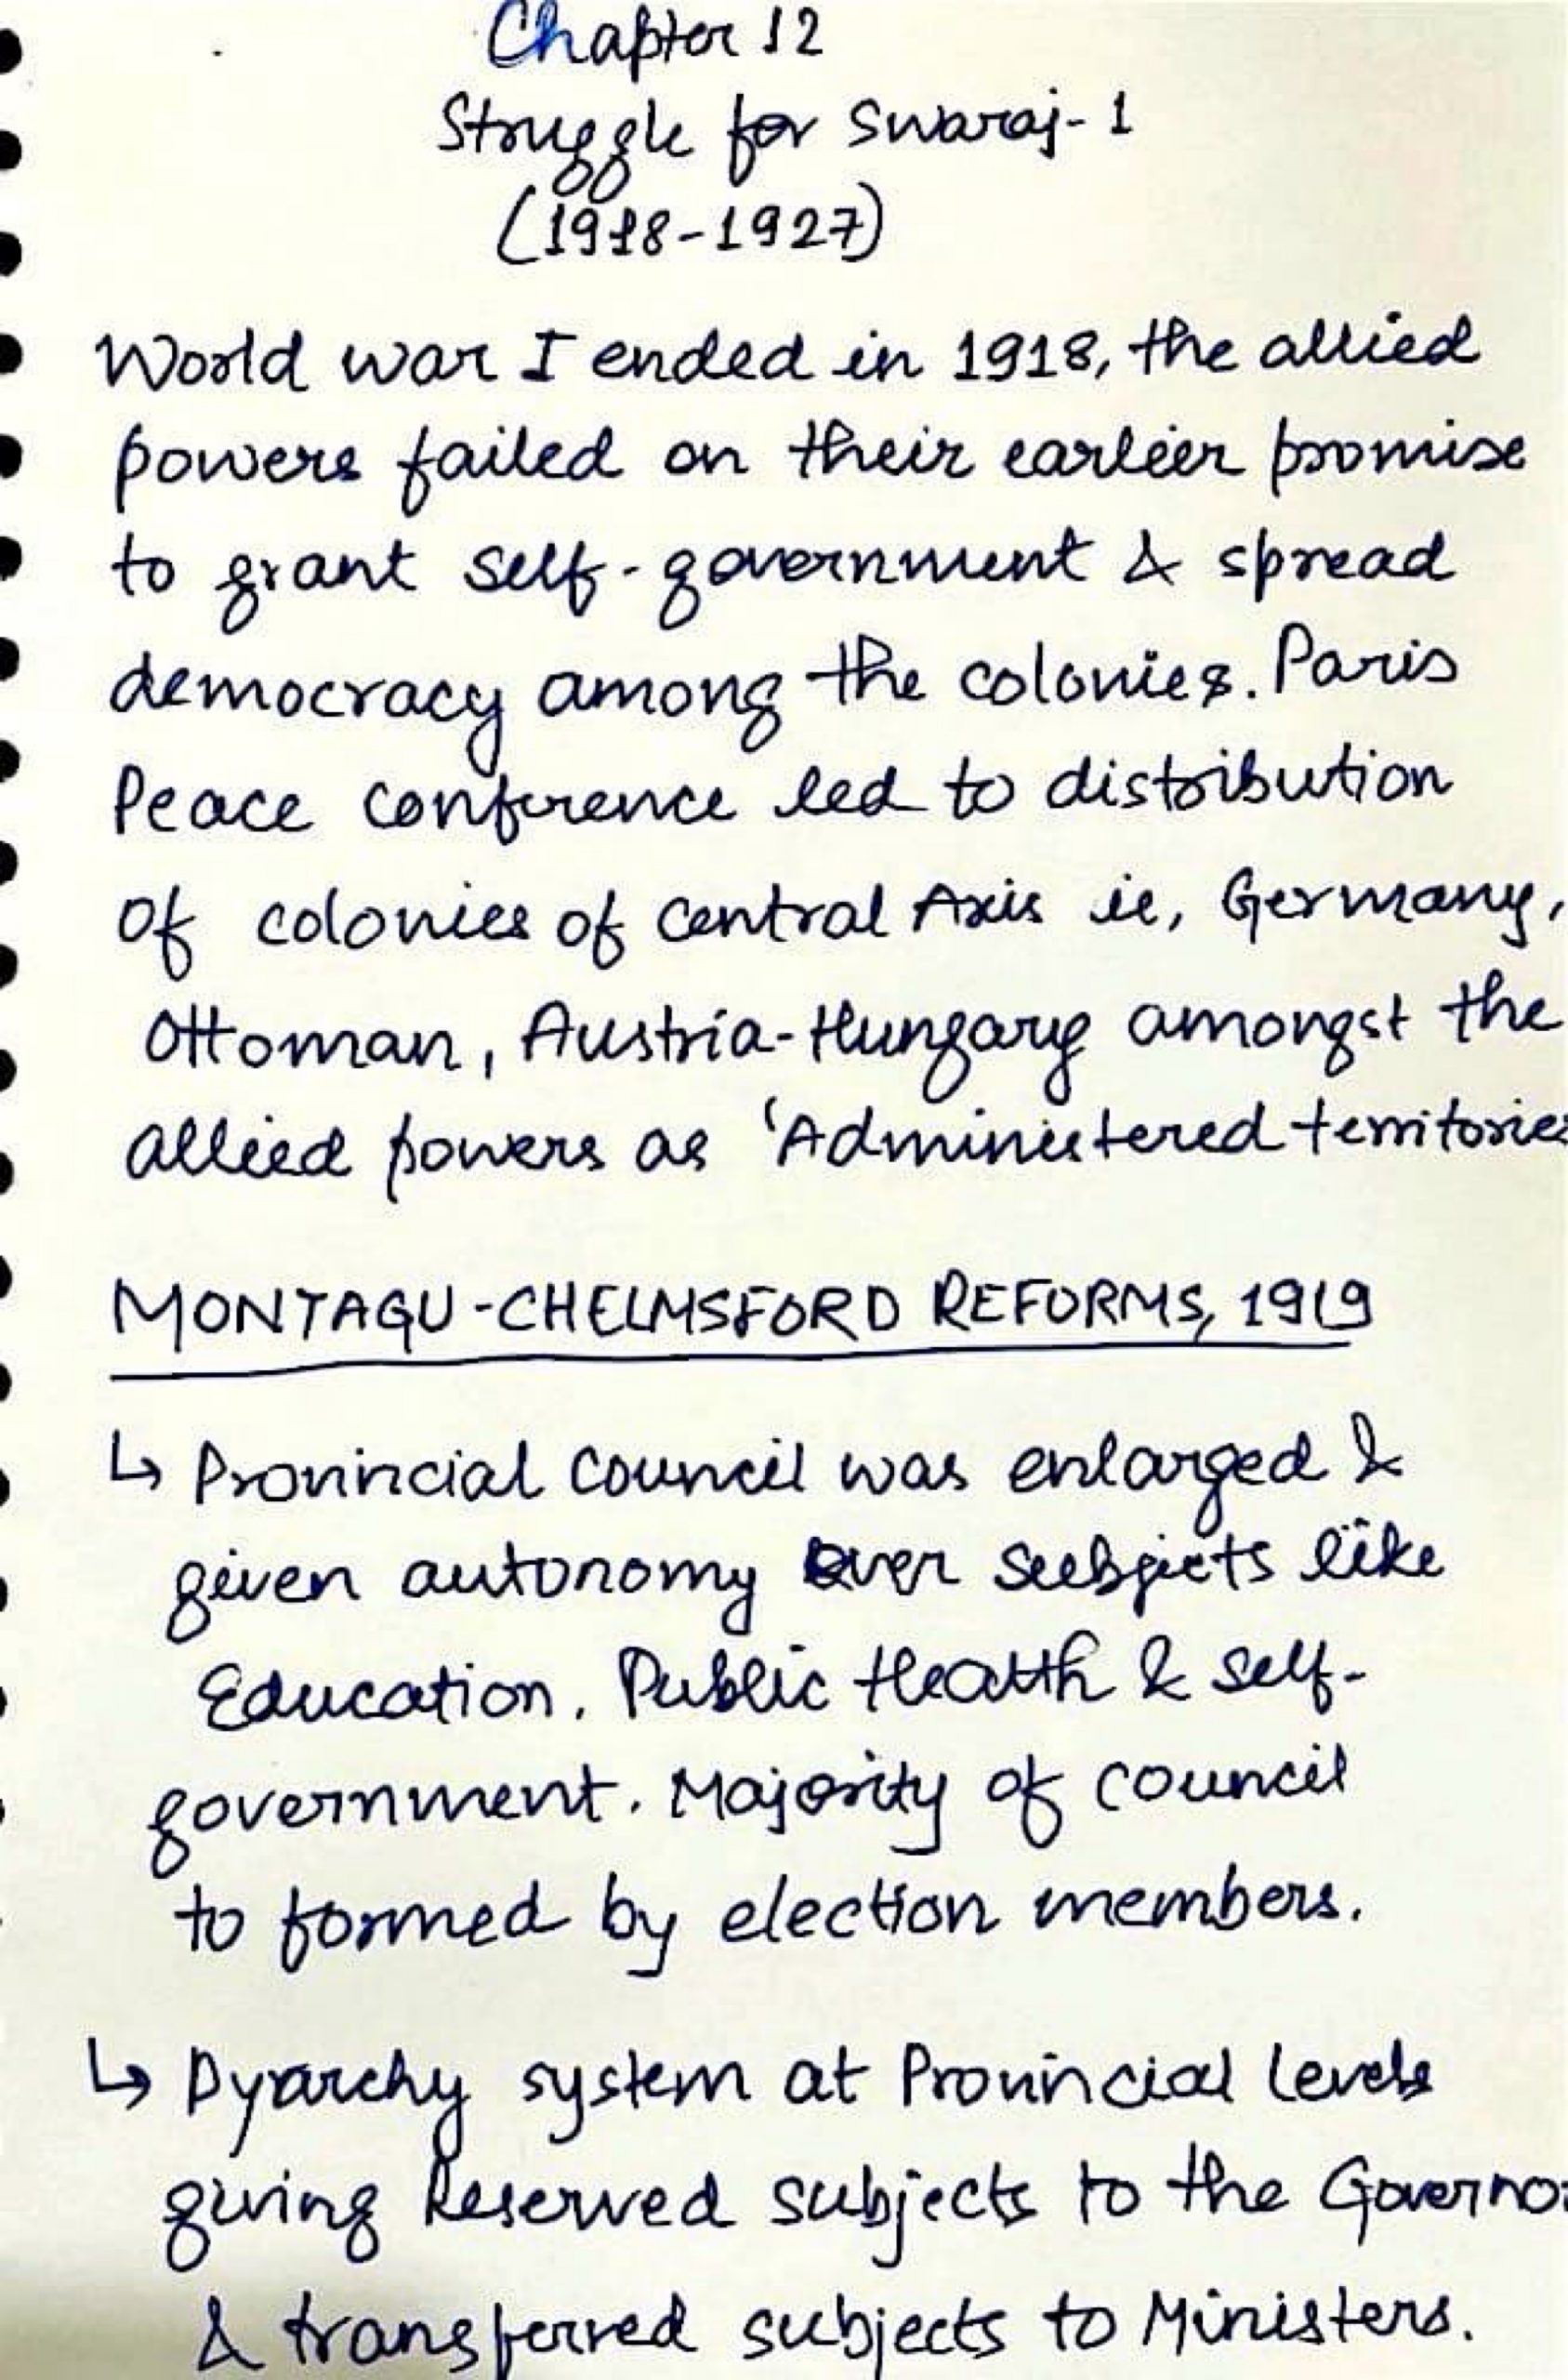 Chapter 12
Struggle for Swaraj-1
(1918-1927)
World war I ended in 1918, the allied
powers failed on their earlier promise
to grant self-government & spread
democracy among the colonies. Paris
Peace conference led to distribution
of colonies of Central Axis ie, Germany,
Ottoman, Austria-Hungary amongst the
allied powers as 'Administered territories
MONTAGU-CHELMSFORD REFORMS, 1919
↳ Provincial Council was enlarged &
given autonomy over subjects like
Education. Public Health & self-
government. Majority of council
to formed by election members.
↳ Dyarchy system at Provincial levels
giving Reserved subjects to the Governor
& transferred subjects to Ministers.